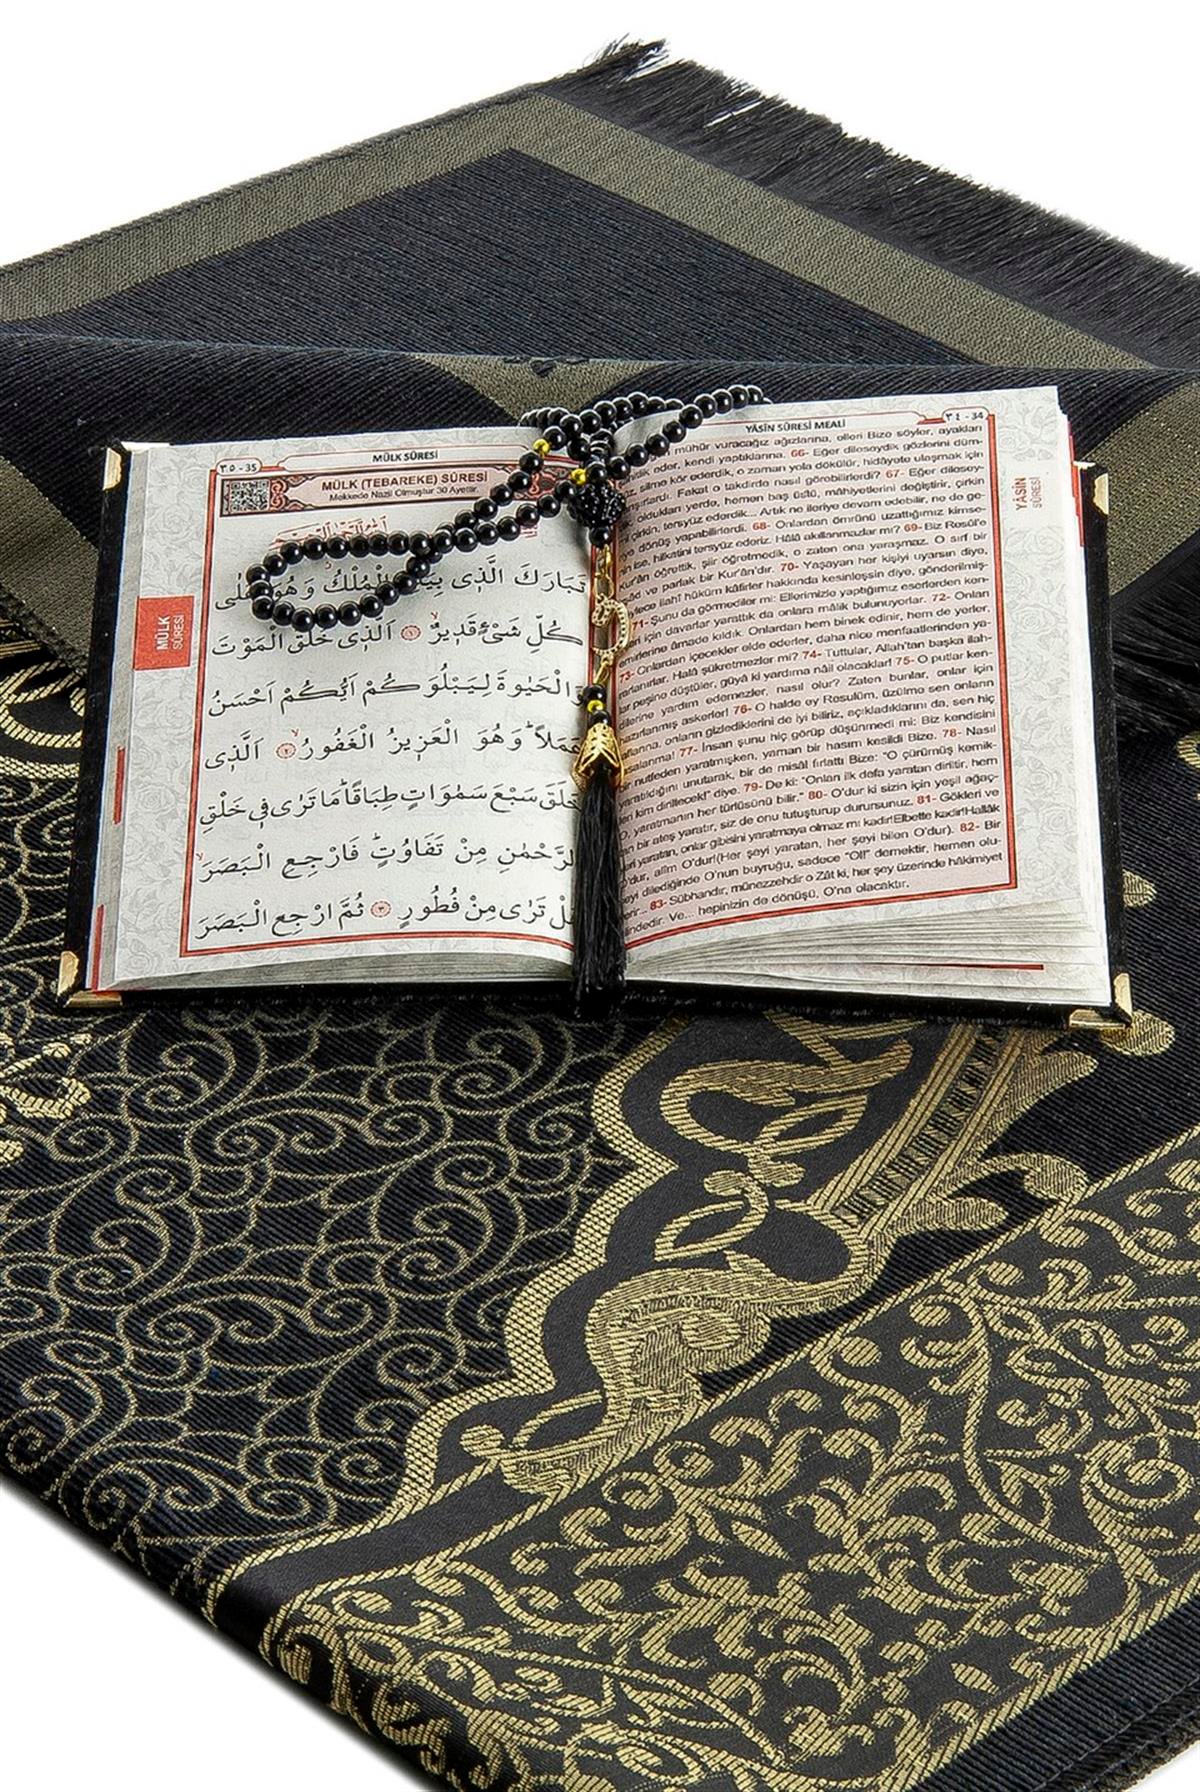 ٣٥ - 35
MÜLK SÛRESİ
MÜLK (TEBAREKE) SÛRESİ
Mekkede Nazil Olmuştur 30 Ayettir.
تَبَارَكَ الَّذ۪ي الْمُلْكُ وَهُوَ عَلٰى
كُلِّ شَىْءٍ قَد۪يرٌ ۙ ﴿١﴾ اَلَّذ۪ي خَلَقَ الْمَوْتَ
وَالْحَيٰوةَ لِيَبْلُوَكُمْ اَيُّكُمْ اَحْسَنُ
عَمَلاً ۜ وَهُوَ الْعَز۪يزُ الْغَفُورُ ۙ ﴿٢﴾ اَلَّذ۪ي
خَلَقَ سَبْعَ سَمٰوَاتٍ طِبَاقًا ۜ مَا تَرٰى ف۪ي خَلْقِ
الرَّحْمٰنِ مِنْ تَفَاوُتٍ ۜ فَارْجِعِ الْبَصَرَ ۙ
هَلْ تَرٰى مِنْ فُطُورٍ ﴿٣﴾ ثُمَّ ارْجِعِ الْبَصَرَ
MÜLK
SÛRESİ
٣٤ - 34
YÂSÎN SÛRESİ MEALİ
mühür vuracağız ağızlarına, elleri Bize söyler, ayakları
eder, kendi yaptıklarına. 66- Eğer dileseydik gözlerini düm-
silme kör ederdik, o zaman yola dökülür, hidâyete ulaşmak için
Fakat o takdirde nasıl görebilirlerdi? 67- Eğer dilesey-
oldukları yerde, hemen baş üstü, mâhiyetlerini değiştirir, çirkin
çirkin, tersyüz ederdik... Artık ne ileriye devam edebilir, ne de ge-
dönüş yapabilirlerdi. 68- Onlardan ömrünü uzattığımız kimse-
ise, hilkatini tersyüz ederiz. Hâlâ akıllanmazlar mı? 69- Biz Resûl'e
Kur'ân öğrettik, şiir öğretmedik, o zaten ona yaraşmaz. O sırf bir
ve parlak bir Kur'ân'dır. 70- Yaşayan her kişiyi uyarsın diye,
ilahî hüküm kâfirler hakkında kesinleşsin diye, gönderilmiş-
71- Şunu da görmediler mi: Ellerimizle yaptığımız eserlerden ken-
için davarlar yarattık da onlara mâlik bulunuyorlar. 72- Onları
emirlerine âmade kıldık. Onlardan hem binek edinir, hem de yerler.
73- Onlardan içecekler elde ederler, daha nice menfaatlerinden ya-
Halâ şükretmezler mi? 74- Tuttular, Allah'tan başka ilah-
peşine düştüler, gûyâ ki yardıma nâil olacaklar! 75- O putlar ken-
dilerine yardım edemezler, nasıl olur? Zaten bunlar, onlar için
hazırlanmış askerler! 76- O halde ey Rosulüm, üzülme sen onların
onların gizlediklerini de iyi biliriz, açıkladıklarını da, sen hiç
77- İnsan şunu hiç görüp düşünmedi mi: Biz kendisini
nutfeden yaratmışken, yaman bir hasım kesildi Bize. 78- Nasıl
yaratıldığını unutarak, bir de misâl fırlattı Bize: "O çürümüş kemik-
kim diriltecek!" diye. 79- De ki: "Onları ilk defa yaratan diriltir, hem
O, yaratmanın her türlüsünü bilir." 80- O'dur ki sizin için yeşil ağaç-
bir ateş yaratır, siz de onu tutuşturup durursunuz. 81- Gökleri ve
yaratan, onlar gibisini yaratmaya olmaz mı kadir! Elbette kadir! Hallâk
O'dur, alîm O'dur! (Her şeyi yaratan, her şeyi bilen O'dur). 82- Bir
dilediğinde O'nun buyruğu, sadece "Ol!" demektir, hemen olu-
83- Sübhandır, münezzehdir o Zât ki, her şey üzerinde hâkimiyet
Ve... hepinizin de dönüşü, O'na olacaktır.
YÂSÎN
SÛRESİ